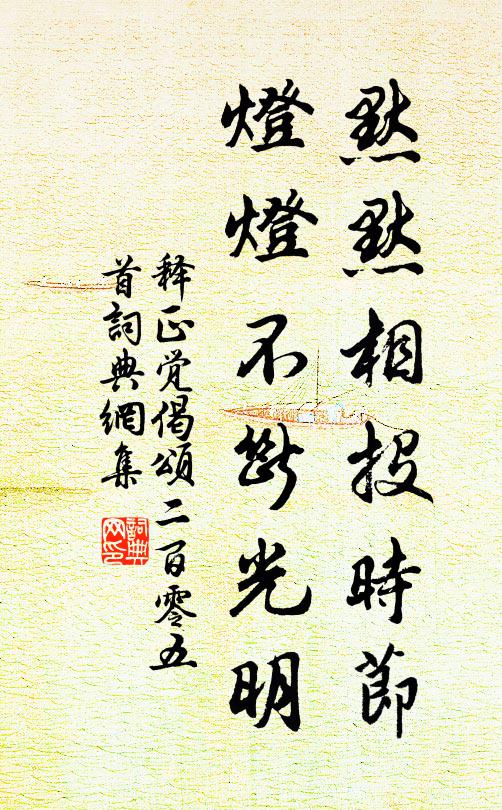 默默相投時節
燈燈不斷光明
釋正覺偈頌二百零五
首詞典網集
詞典网印